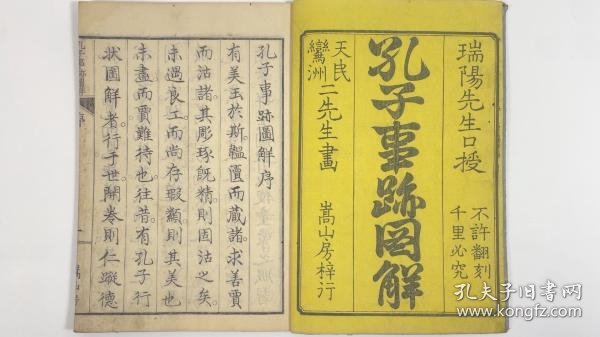 瑞陽先生口授
不許翻刻
千里必究
孔子事跡図解
天民
鸞洲
二先生畫
嵩山房梓行
孔子事跡圖解序
有美玉於斯。韞匵而藏諸。求善賈
而沽諸。其彫琢既精。則固沽之矣。
未遇良工。而尚存瑕纇。則其美也
未盡。而賈難待也。往昔。有孔子行
狀圖解者。行于世。開卷則仁蹤德
孔夫子旧书网